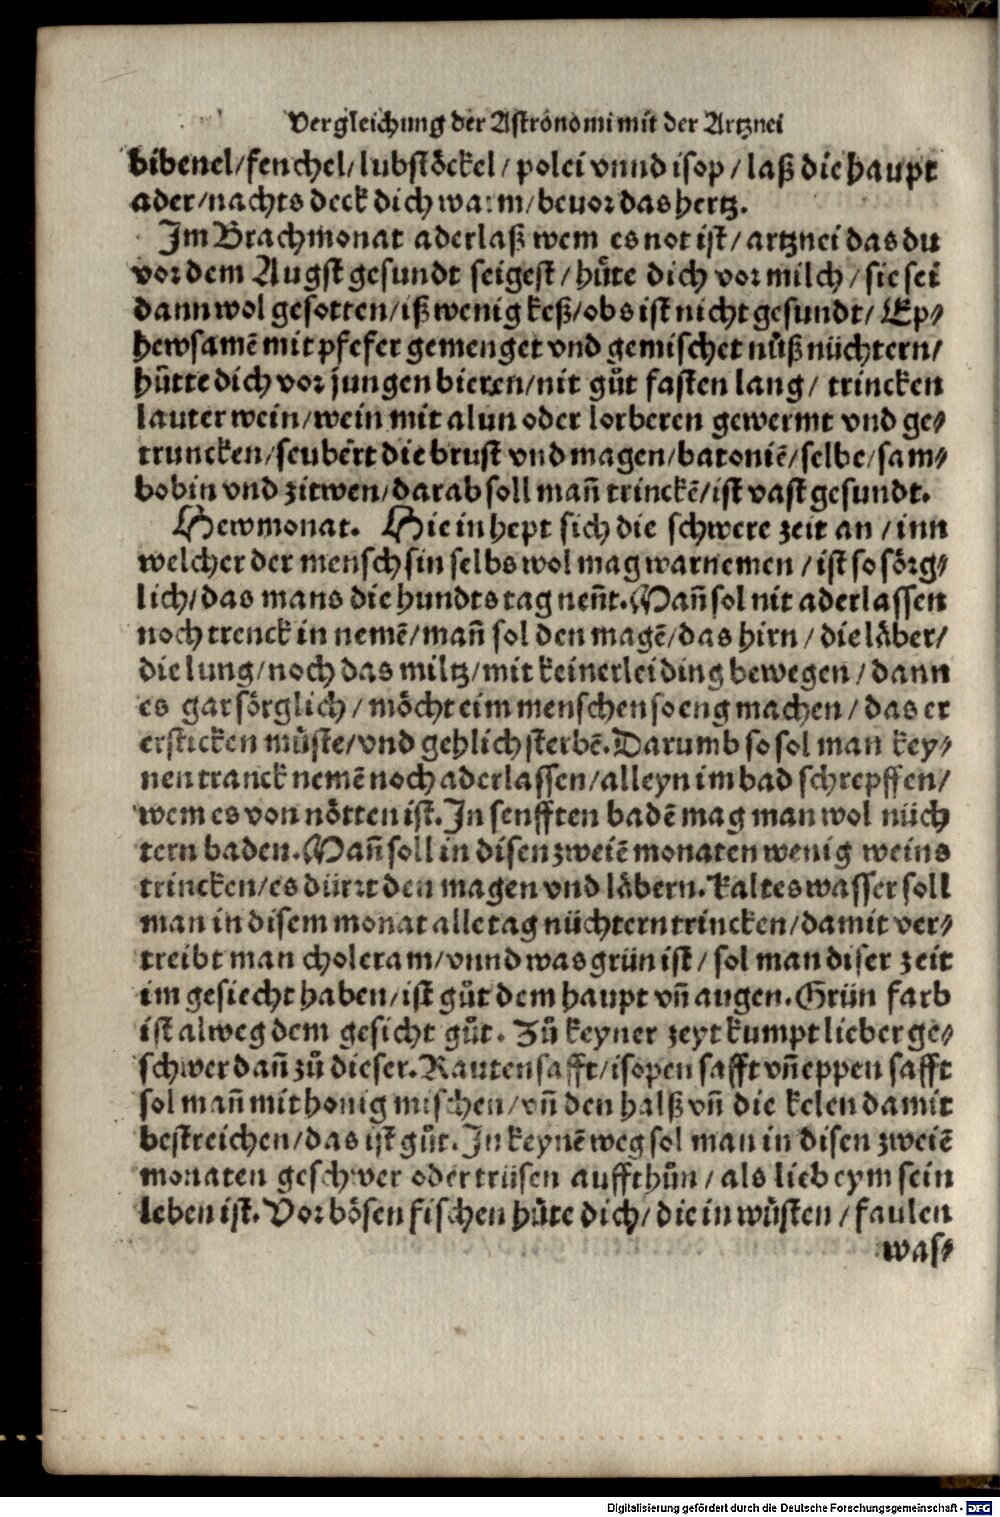 Vergleichung der Astronomi mit der Artznei
bibenel/fenchel/lubstöckel/polei vnnd isop/laß die haupt
ader/nachts deck dich warm/beuor das hertz.
Im Brachmonat aderlaß wem es not ist/artznei das du
vor dem Augst gesundt seigest/hůte dich vor milch/sie sei
dann wol gesotten/iß wenig keß/obs ist nicht gesundt/Ep⸗
hewsamē mit pfefer gemenget vnd gemischet nůß nüchtern/
hůtte dich vor jungen bieren/nit gůt fasten lang/trincken
lauter wein/wein mit alun oder lorberen gewermt vnd ge⸗
truncken/seubert die brust vnd magen/batoniē/selbe/sam⸗
bobin vnd zitwen/darab soll mañ trinckē/ist vast gesundt.
Hewmonat. Hie in hept sich die schwere zeit an/inn
welcher der mensch sin selbs wol mag warnemen/ist so sörg⸗
lich/das mans die hundts tag neñt. Mañ sol nit aderlassen
noch trenck in nemē/mañ sol den magē/das hirn/die låber/
die lung/noch das miltz/mit keinerlei ding bewegen/dann
es gar sörglich/möcht eim menschen so eng machen/das er
ersticken můste/vnd gehlich sterbē. Darumb so sol man key⸗
nen tranck nemē noch aderlassen/alleyn im bad schrepffen/
wem es von nötten ist. In senfften badē mag man wol nüch
tern baden. Mañ soll in disen zweiē monaten wenig weins
trincken/es dürrt den magen vnd låbern. Kaltes wasser soll
man in disem monat alle tag nüchtern trincken/damit ver⸗
treibt man choleram/vnnd was grün ist/sol man diser zeit
im gesiecht haben/ist gůt dem haupt vñ augen. Grün farb
ist alweg dem gesicht gůt. Zů keyner zeyt kumpt lieber ge⸗
schwer dañ zů dieser. Rautensafft/isopen safft vñ eppen safft
sol mañ mit honig mischen/vñ den halß vñ die kelen damit
bestreichen/das ist gůt. In keynē weg sol man in disen zweiē
monaten geschwer oder trüsen auffthůn/als lieb eym sein
leben ist. Vor bösen fischen hůte dich/die in wůsten/faulen
was⸗
Digitalisierung gefördert durch die Deutsche Forschungsgemeinschaft - DFG